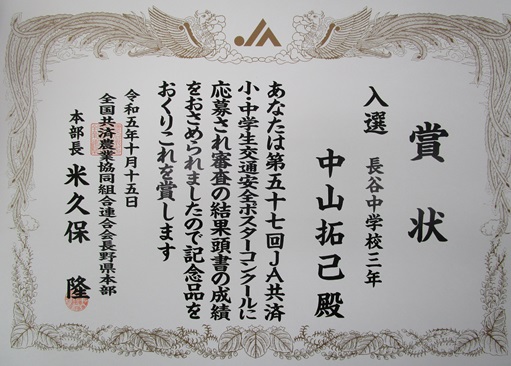 賞状
入選 長谷中学校三年
中山拓己殿
あなたは第五十七回JA共済
小・中学生交通安全ポスターコンクールに
応募され審査の結果頭書の成績
をおさめられましたので記念品を
おくりこれを賞します
令和五年十月十五日
全国共済農業協同組合連合会長野県本部
本部長 米久保 隆